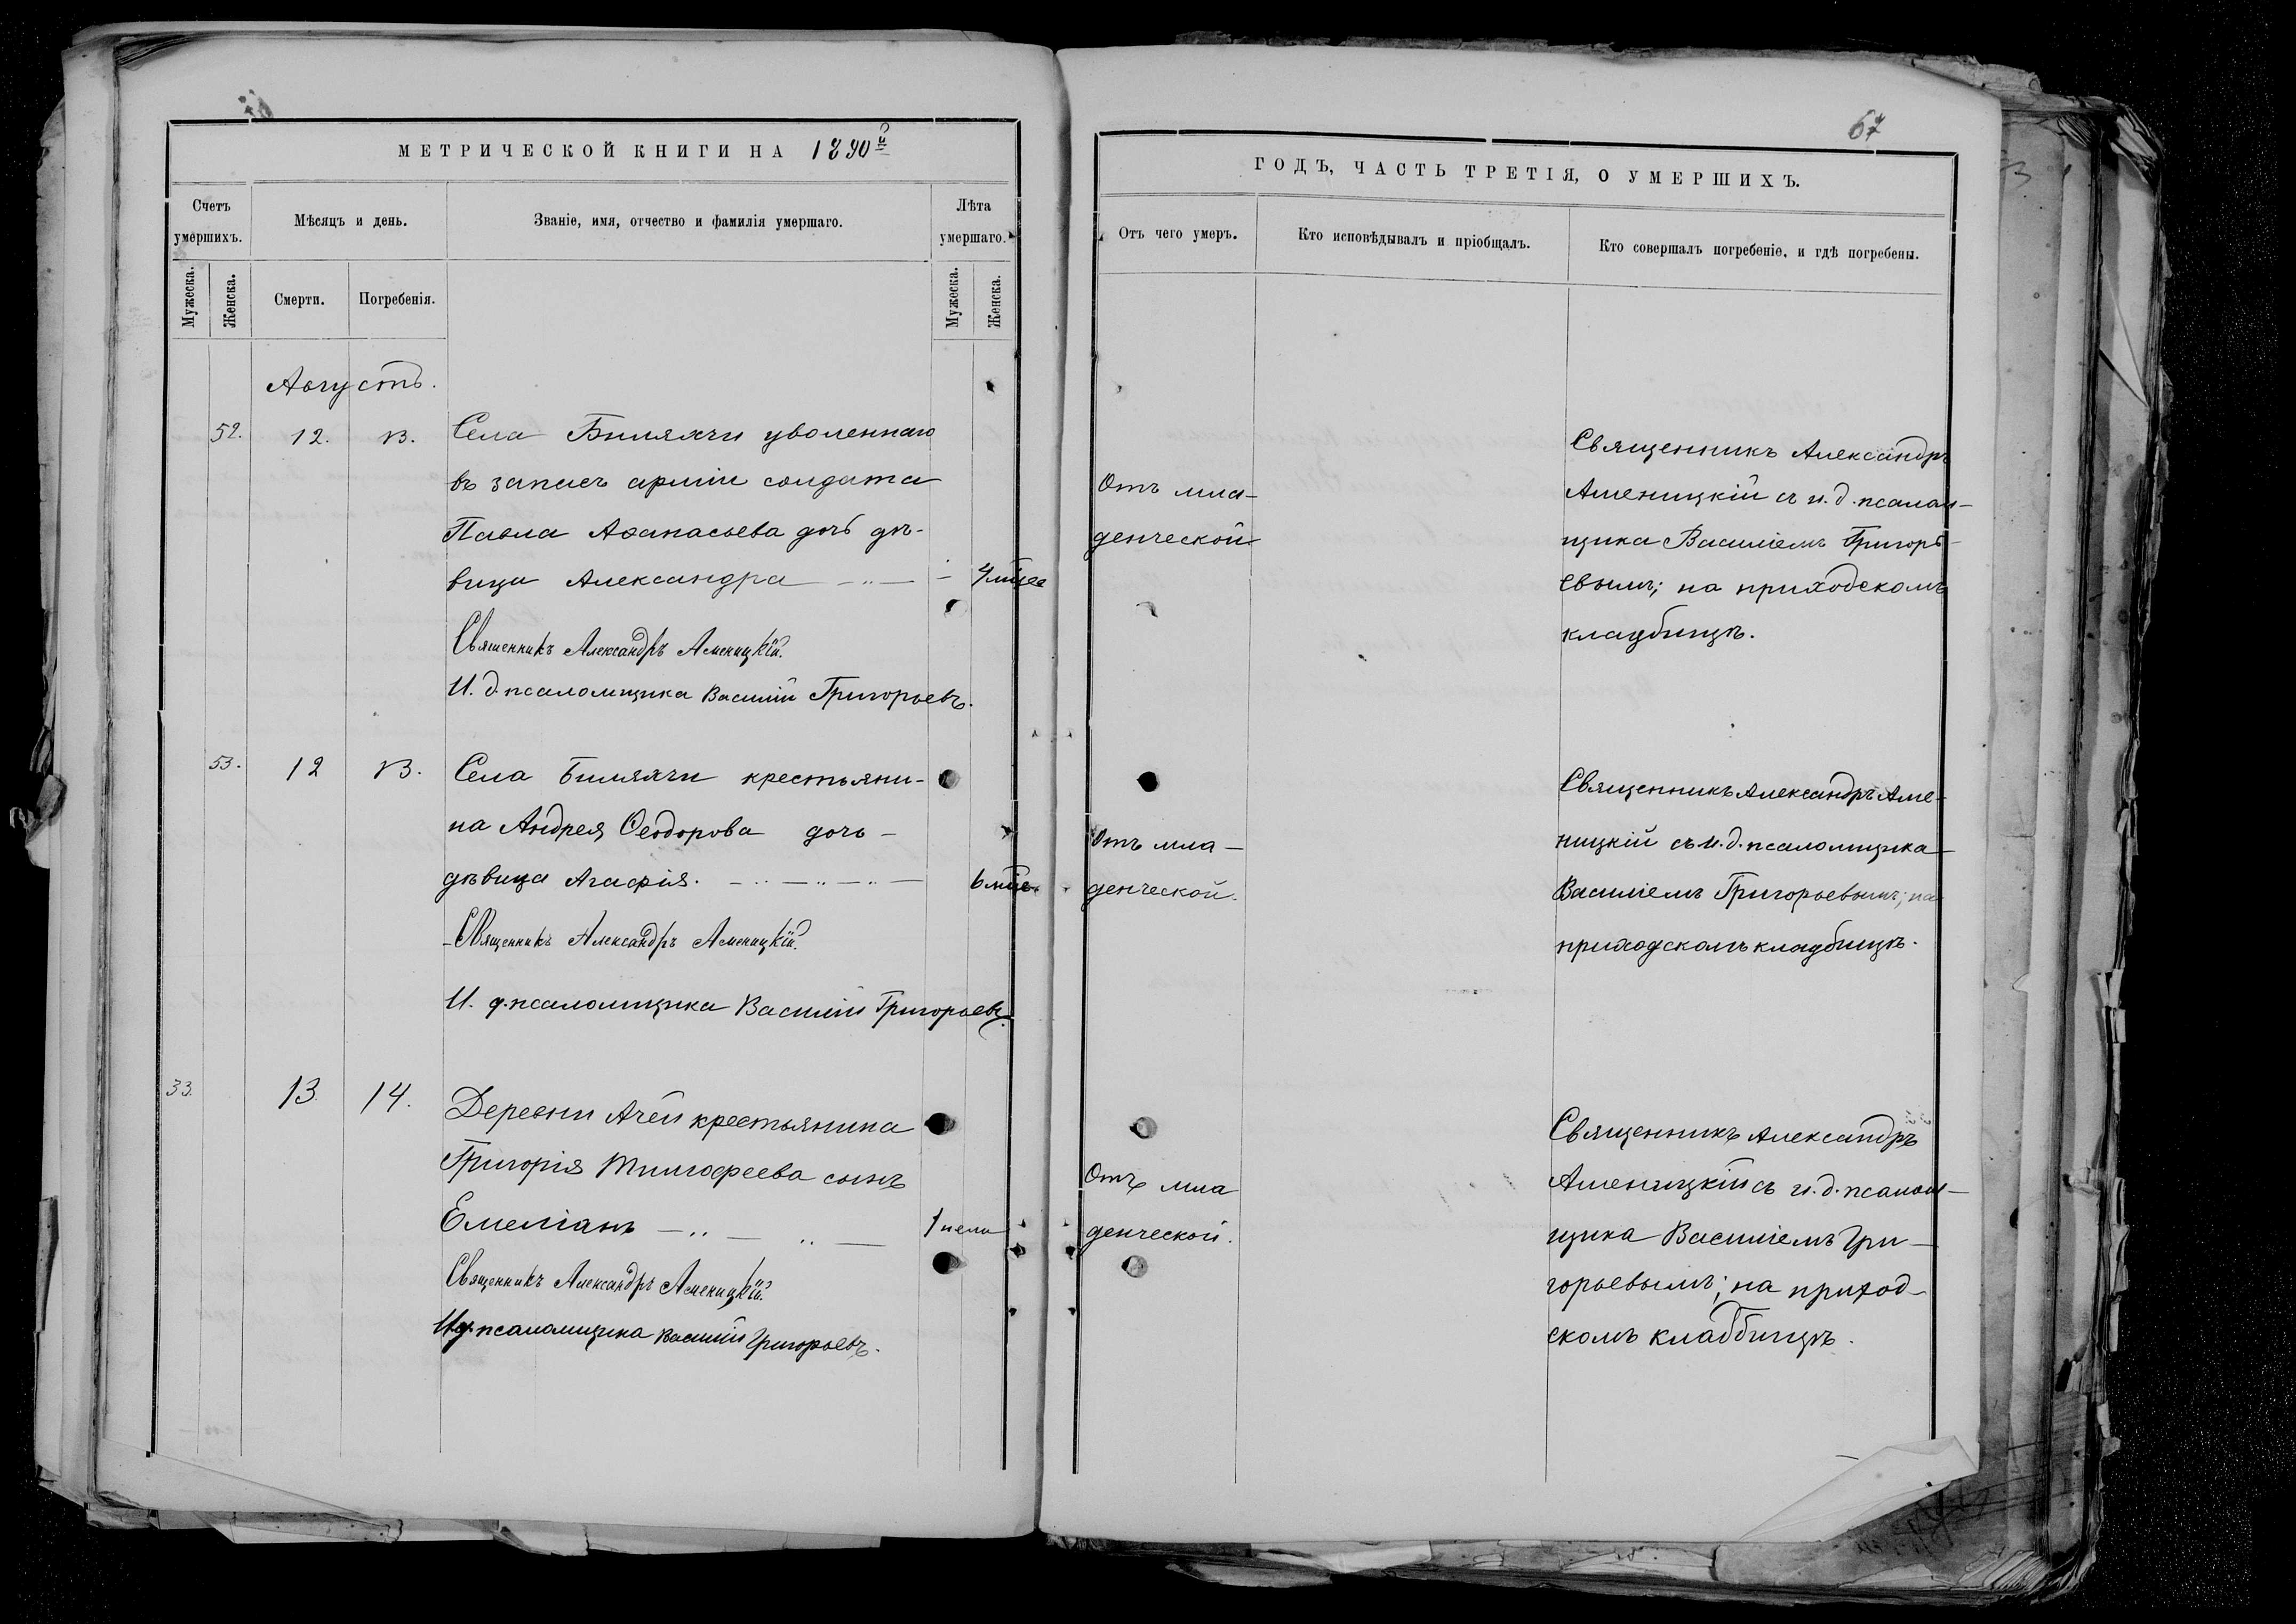 МЕТРИЧЕСКОЙ КНИГИ НА 1890й
Счетъ умершихъ.
Мѣсяцъ и день.
Званіе, имя, отчество и фамилія умершаго.
Лѣта умершаго.
Мужеска.
Женска.
Смерти.
Погребенія.
Мужеска.
Женска.
Августъ.
52. 12. 13. Села Билярчи уволеннаго
въ запасъ арміи солдата
Павла Аѳанасьева дочь дѣ-
вица Александра — " — 4 мѣсе
Священникъ Александръ Аменицкій.
И. д. псаломщика Василій Григорьевъ.
53. 12 13. Села Билярчи крестьяни-
на Андрея Ѳеодорова дочь -
дѣвица Агафія. - " - " - " - 6 мѣсе
Священникъ Александръ Аменицкій.
И. д. псаломщика Василій Григорьевъ.
33. 13. 14. Деревни Ачеи крестьянина
Григорія Тимофеева сынъ
Емеліанъ — " — " — 1 нели
Священникъ Александръ Аменицкій.
И д. псаломщика Василій Григорьевъ.
67
ГОДЪ, ЧАСТЬ ТРЕТІЯ, О УМЕРШИХЪ.
Отъ чего умеръ.
Кто исповѣдывалъ и пріобщалъ.
Кто совершалъ погребеніе, и гдѣ погребены.
Отъ мла-
денческой
Священникъ Александръ
Аменицкій съ и. д. псалом-
щика Василіемъ Григорь-
евымъ; на приходскомъ
кладбищѣ.
Отъ мла-
денческой.
Священникъ Александръ Аме-
ницкій съ и. д. псаломщика
Василіемъ Григорьевымъ; на
приходскомъ кладбищѣ.
Отъ мла
денческой.
Священникъ Александръ
Аменицкій съ и. д. псалом-
щика Василіемъ Гри-
горьевымъ; на приход-
скомъ кладбищѣ.